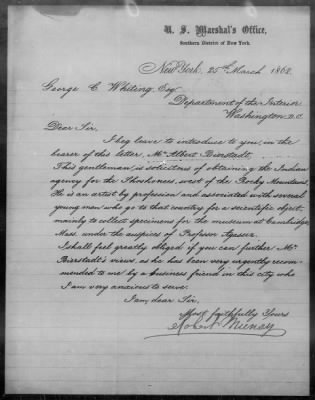 U. S. Marshal's Office,
Southern District of New York.
New York, 25th March 1862.
George C. Whiting, Esq
Department of the Interior
Washington D.C.
Dear Sir,
I beg leave to introduce to you, in the
bearer of this letter, Mr Albert Bierstadt.
This gentleman, is solicitous of obtaining the Indian
agency for the Shoshones, west of the Rocky Mountains.
He is an artist by profession and associated with several
young men who go to that country for a scientific object,
mainly to collect specimens for the museum at Cambridge,
Mass. under the auspices of Professor Agassiz.
I shall feel greatly obliged if you can further Mr
Bierstadt's views, as he has been very urgently recom-
mended to me by a business friend in this city who
I am very anxious to serve.
I am, dear Sir,
Most faithfully Yours
Robert Murray